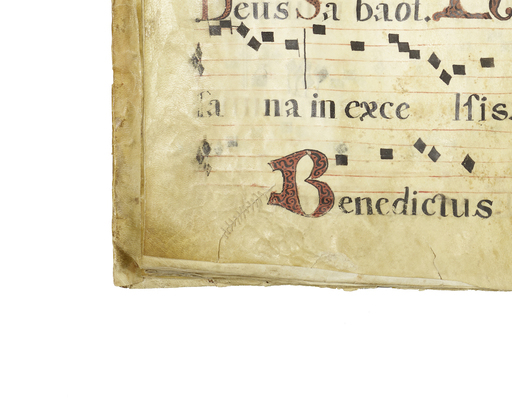 Deus Sa baot.
na in exce lsis.
Benedictus